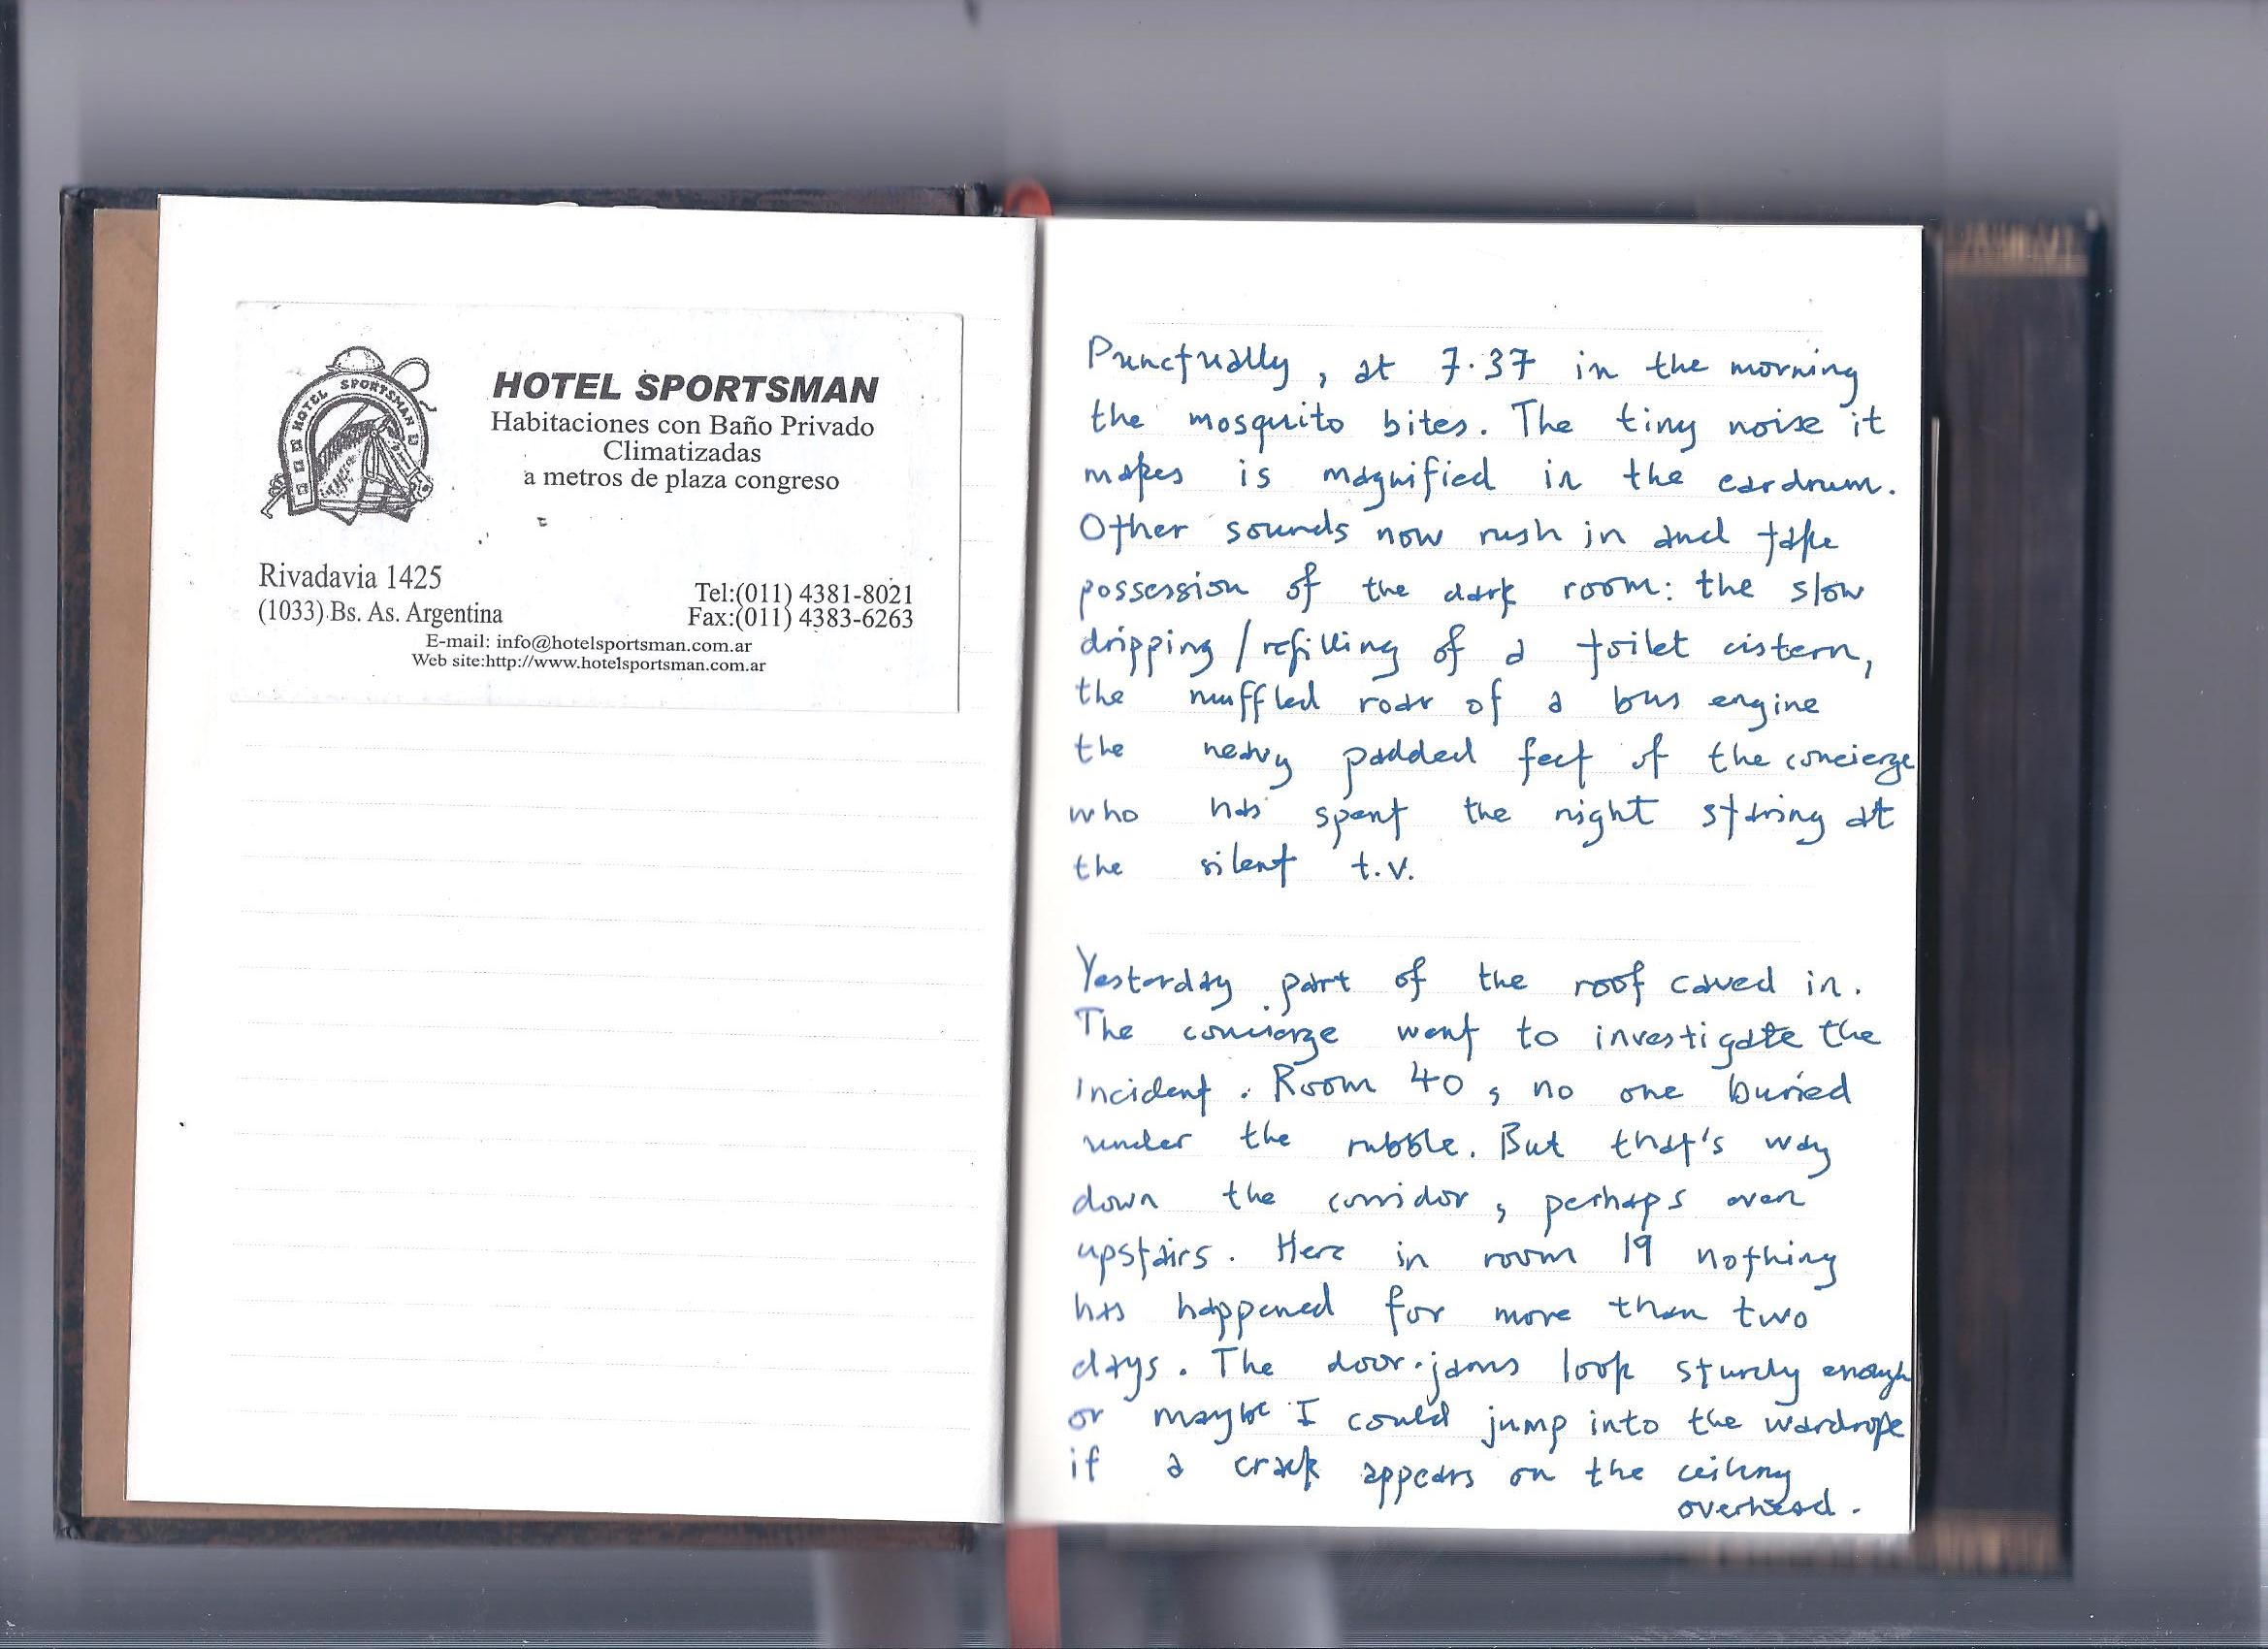 HOTEL SPORTSMAN
HOTEL SPORTSMAN
Habitaciones con Baño Privado
Climatizadas
a metros de plaza congreso
Rivadavia 1425
(1033) Bs. As. Argentina
Tel:(011) 4381-8021
Fax:(011) 4383-6263
E-mail: info@hotelsportsman.com.ar
Web site:http://www.hotelsportsman.com.ar
Punctually, at 7.37 in the morning
the mosquito bites. The tiny noise it
makes is magnified in the eardrum.
Other sounds now rush in and take
possession of the dark room: the slow
dripping/refilling of a toilet cistern,
the muffled roar of a bus engine
the heavy padded feet of the concierge
who has spent the night staring at
the silent t.v.
Yesterday part of the roof caved in.
The concierge went to investigate the
incident. Room 40, no one buried
under the rubble. But that's way
down the corridor, perhaps even
upstairs. Here in room 19 nothing
has happened for more than two
days. The door-jams look sturdy enough
or maybe I could jump into the wardrope
if a crack appears on the ceiling
overhead.